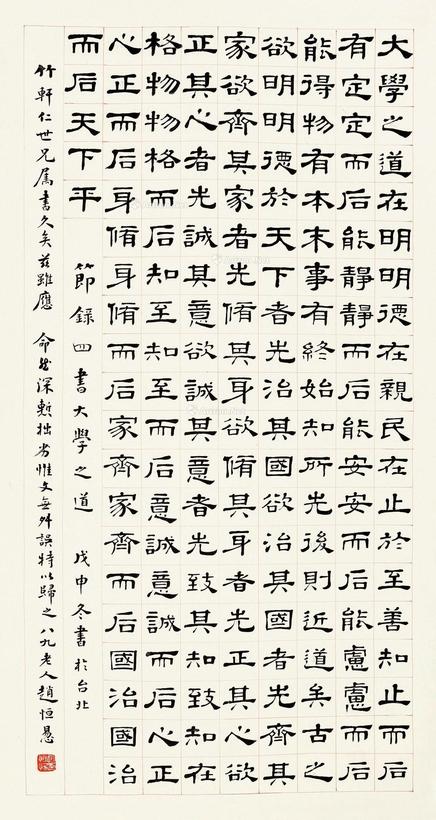 大學之道在明明德在親民在止於至善知止而后
有定定而后能靜靜而后能安安而后能慮慮而后
能得物有本末事有終始知所先後則近道矣古之
欲明明德於天下者先治其國欲治其國者先齊其
家欲齊其家者先脩其身欲脩其身者先正其心欲
正其心者先誠其意欲誠其意者先致其知致知在
格物物格而后知至知至而后意誠意誠而后心正
心正而后身脩身脩而后家齊家齊而后國治國治
而后天下平
節錄四書大學之道 戊申冬書於台北
竹軒仁世兄屬書久矣茲雖應
命然深慙拙劣惟文無舛誤特以歸之八九老人趙恒惖